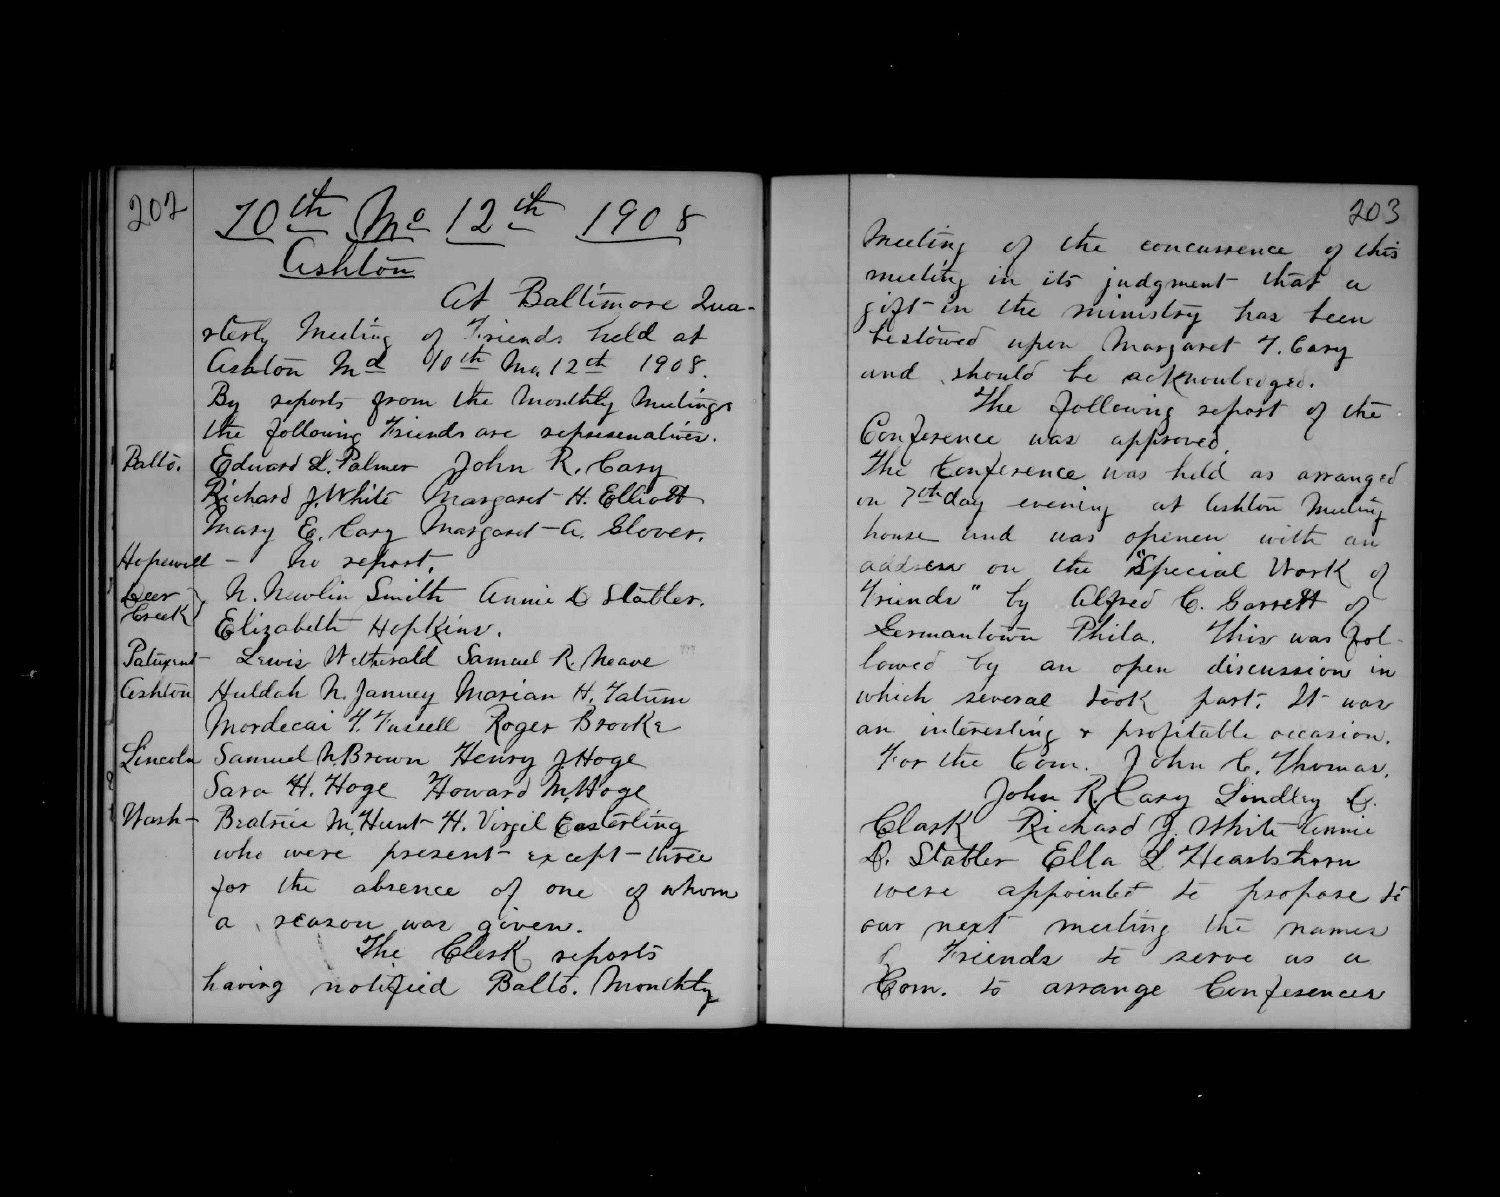 202
10th Mo 12th 1908
Ashton
At Baltimore Qua-
rterly Meeting of Friends held at
Ashton Md 10th Mo. 12th 1908.
By reports from the Monthly Meetings
the following Friends are represenatives.
Balto. Edward L. Palmer John R. Cary
Richard J. White Margaret H. Elliott
Mary E. Cary Margaret A. Glover.
Hopewell - no report.
Deer Creek } N. Newlin Smith Annie D Statler.
Elizabeth Hopkins.
Patuxent Lewis Wetherald Samuel R. Neave
Ashton Huldah N. Janney Marian H. Tatum
Mordecai T. Fussell Roger Brooke
Lincoln Samuel N. Brown Henry J Hoge
Sara H. Hoge Howard M. Hoge
Wash- Beatrice M. Hunt H. Virgil Easterling
who were present except three
for the absence of one of whom
a reason was given.
The Clerk reports
having notified Balto. Monthly
203
Meeting of the concurrence of this
meeting in its judgment that a
gift in the ministry has been
bestowed upon Margaret T. Cary
and should be acknowledged.
The following report of the
Conference was approved.
The Conference was held as arranged
on 7th day evening at Ashton Meeting
house and was opened with an
address on the "Special Work of
Friends" by Alfred C. Garrett of
Germantown Phila. This was fol-
lowed by an open discussion in
which several took part. It was
an interesting & profitable occasion.
For the Com. John C. Thomas.
John R. Cary Lindley D.
Clark Richard J. White Annie
D. Statler Ella L Heartshorn
were appointed to propose to
our next meeting the names
of Friends to serve as a
Com. to arrange Conferences